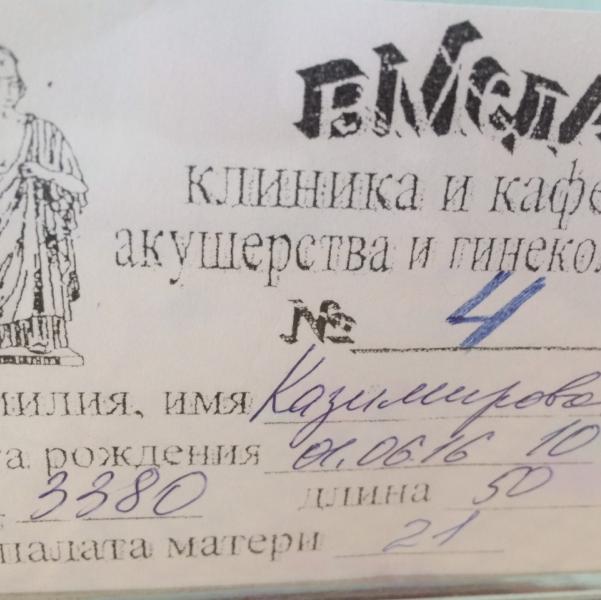 ВМедА
клиника и кафе
акушерства и гинекол
№ 4
милия, имя Казимирова
та рождения 01.06.16 10
3380 длина 50
палата матери 21